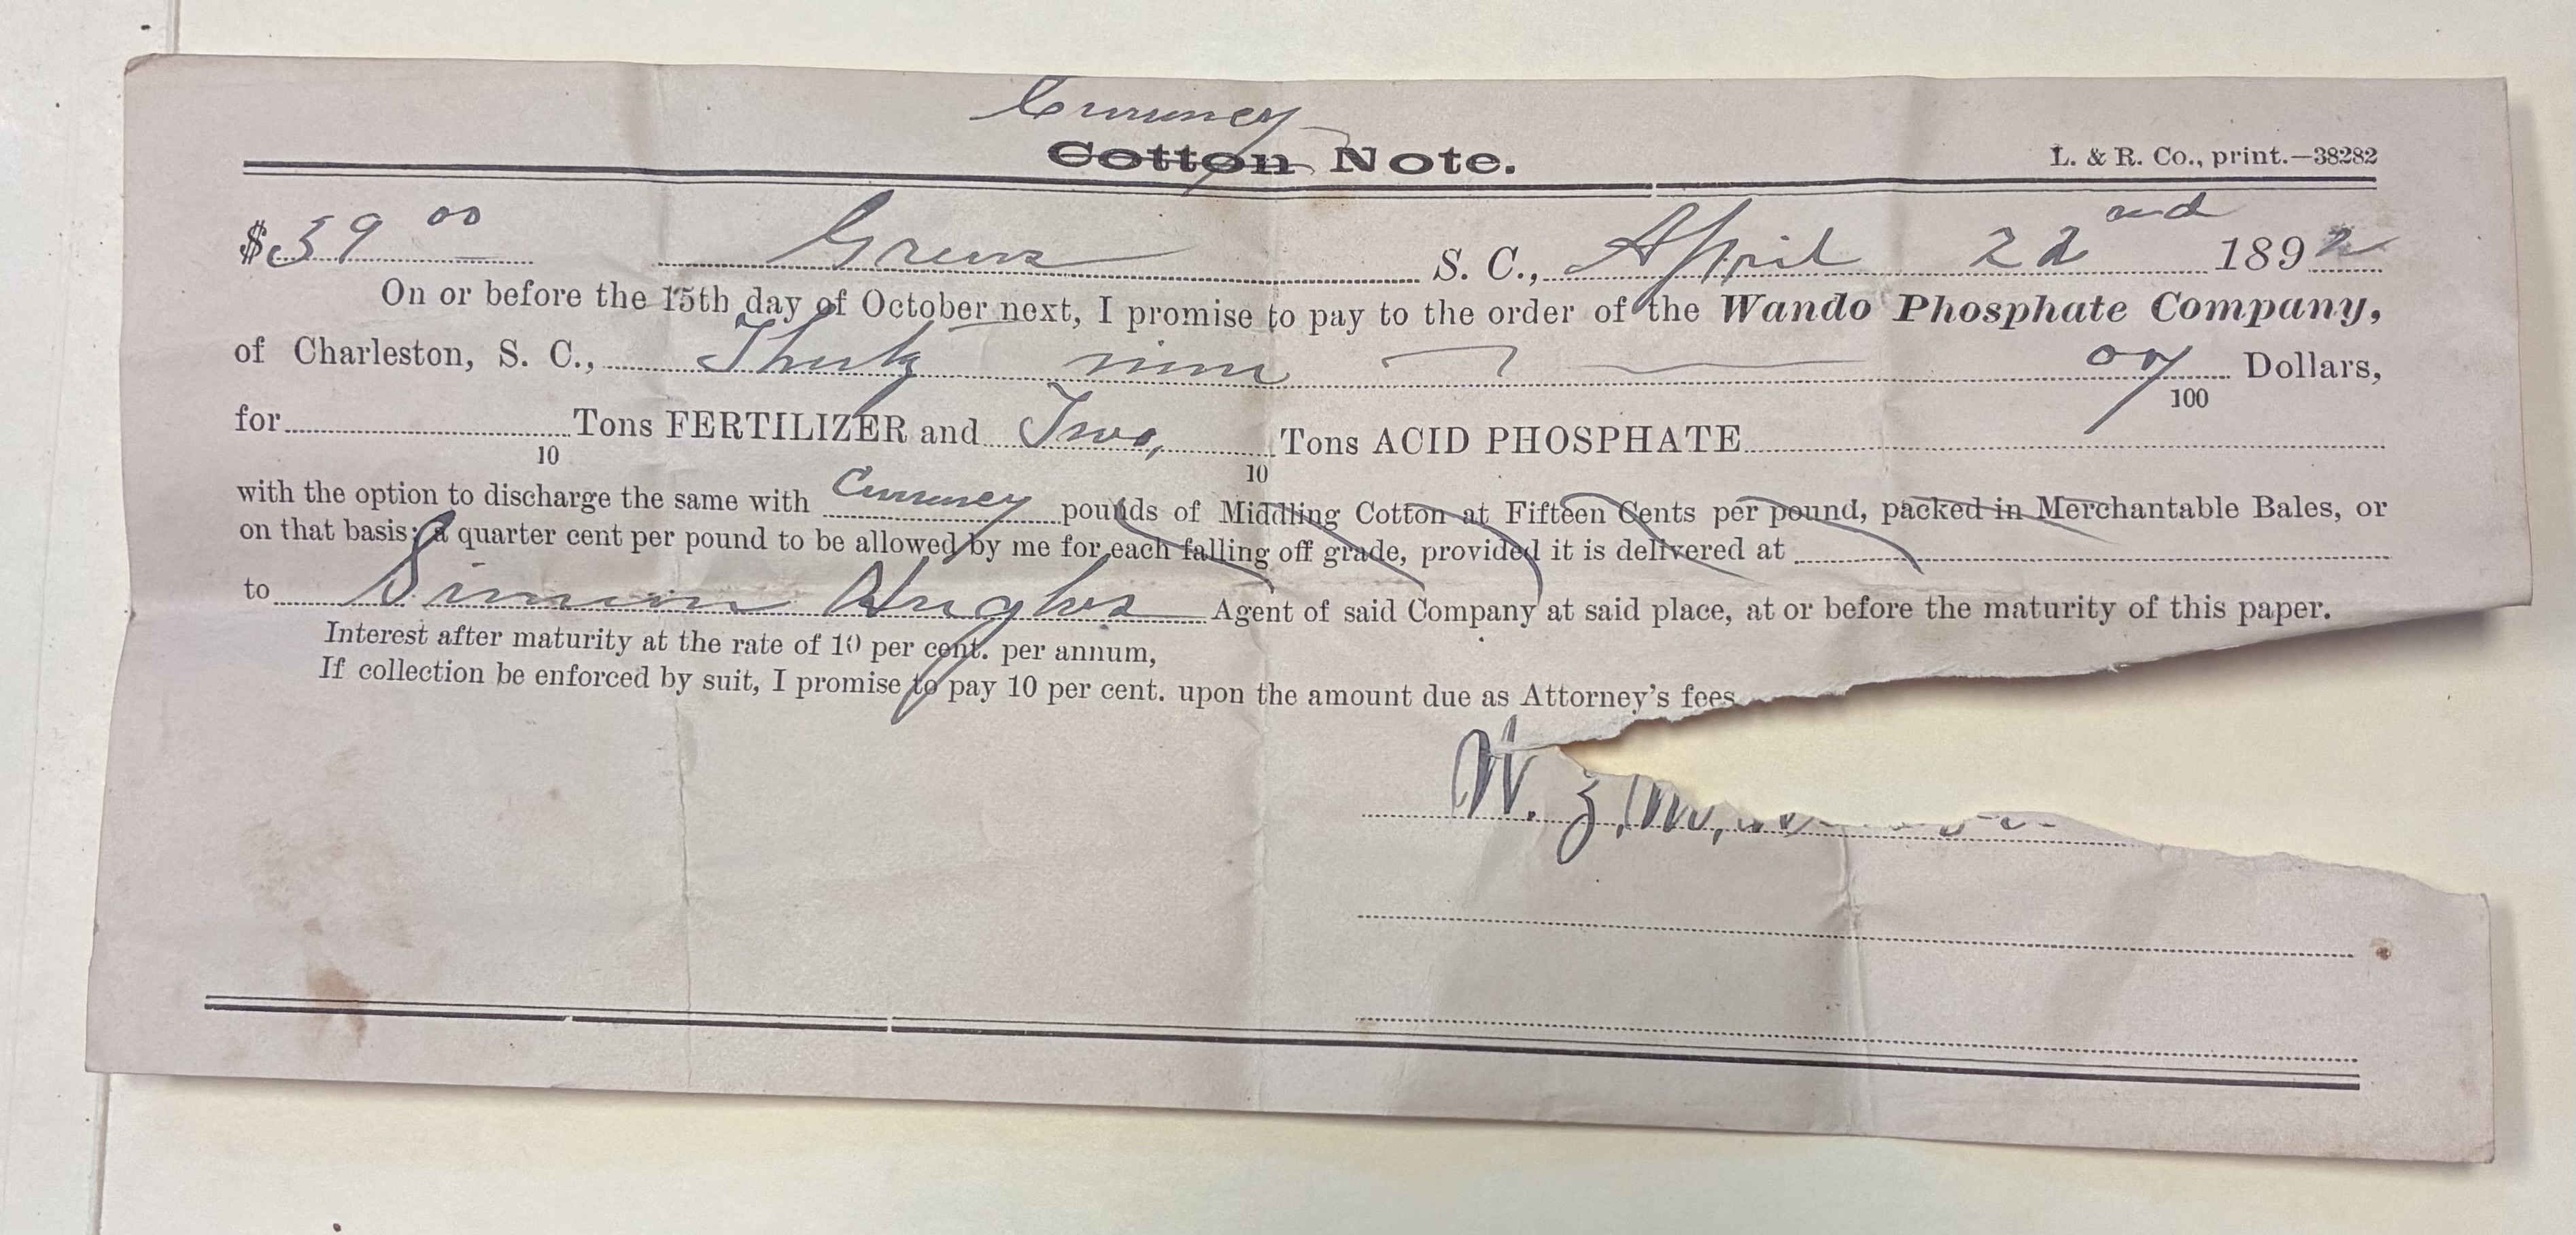 Currency
Cotton Note.
L. & R. Co., print.—38282
$39 00 Greers S. C., April 22nd 1892
On or before the 15th day of October next, I promise to pay to the order of the Wando Phosphate Company,
of Charleston, S. C., Thirty nine 00/100 Dollars,
for ... /10 Tons FERTILIZER and Two, /10 Tons ACID PHOSPHATE
with the option to discharge the same with Currency pounds of Middling Cotton at Fifteen Cents per pound, packed in Merchantable Bales, or
on that basis; a quarter cent per pound to be allowed by me for each falling off grade, provided it is delivered at
to Simeon Hughes Agent of said Company at said place, at or before the maturity of this paper.
Interest after maturity at the rate of 10 per cent. per annum,
If collection be enforced by suit, I promise to pay 10 per cent. upon the amount due as Attorney's fees
W. Z.